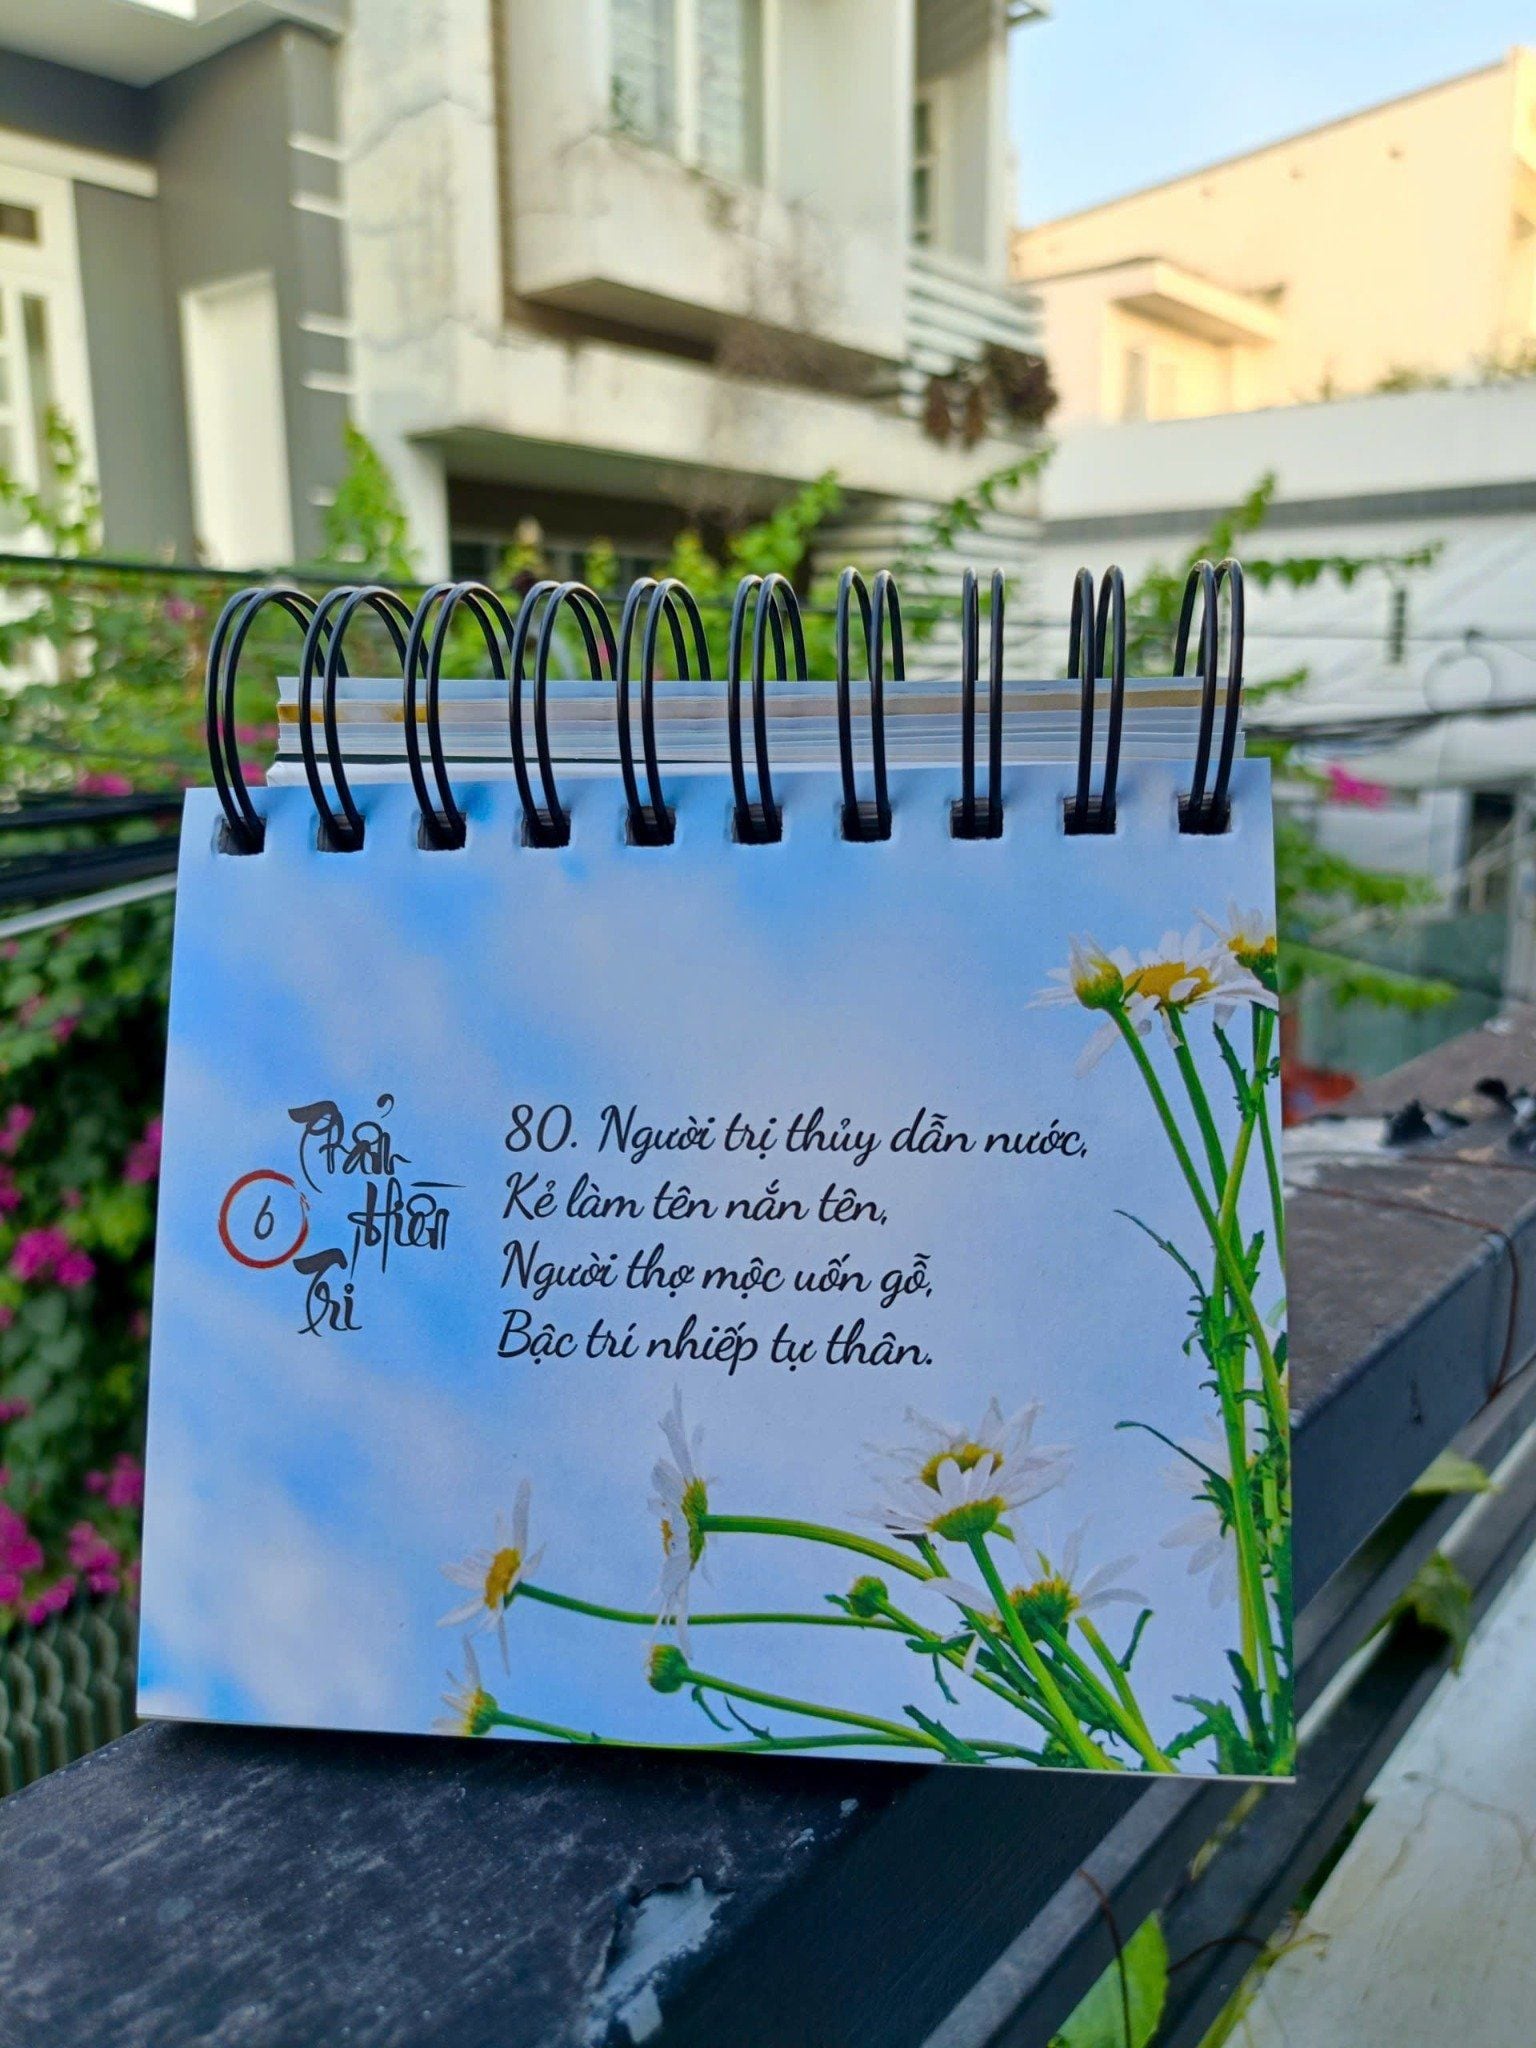 Phẩm
6
Hiền
Trí
80. Người trị thủy dẫn nước,
Kẻ làm tên nắn tên,
Người thợ mộc uốn gỗ,
Bậc trí nhiếp tự thân.